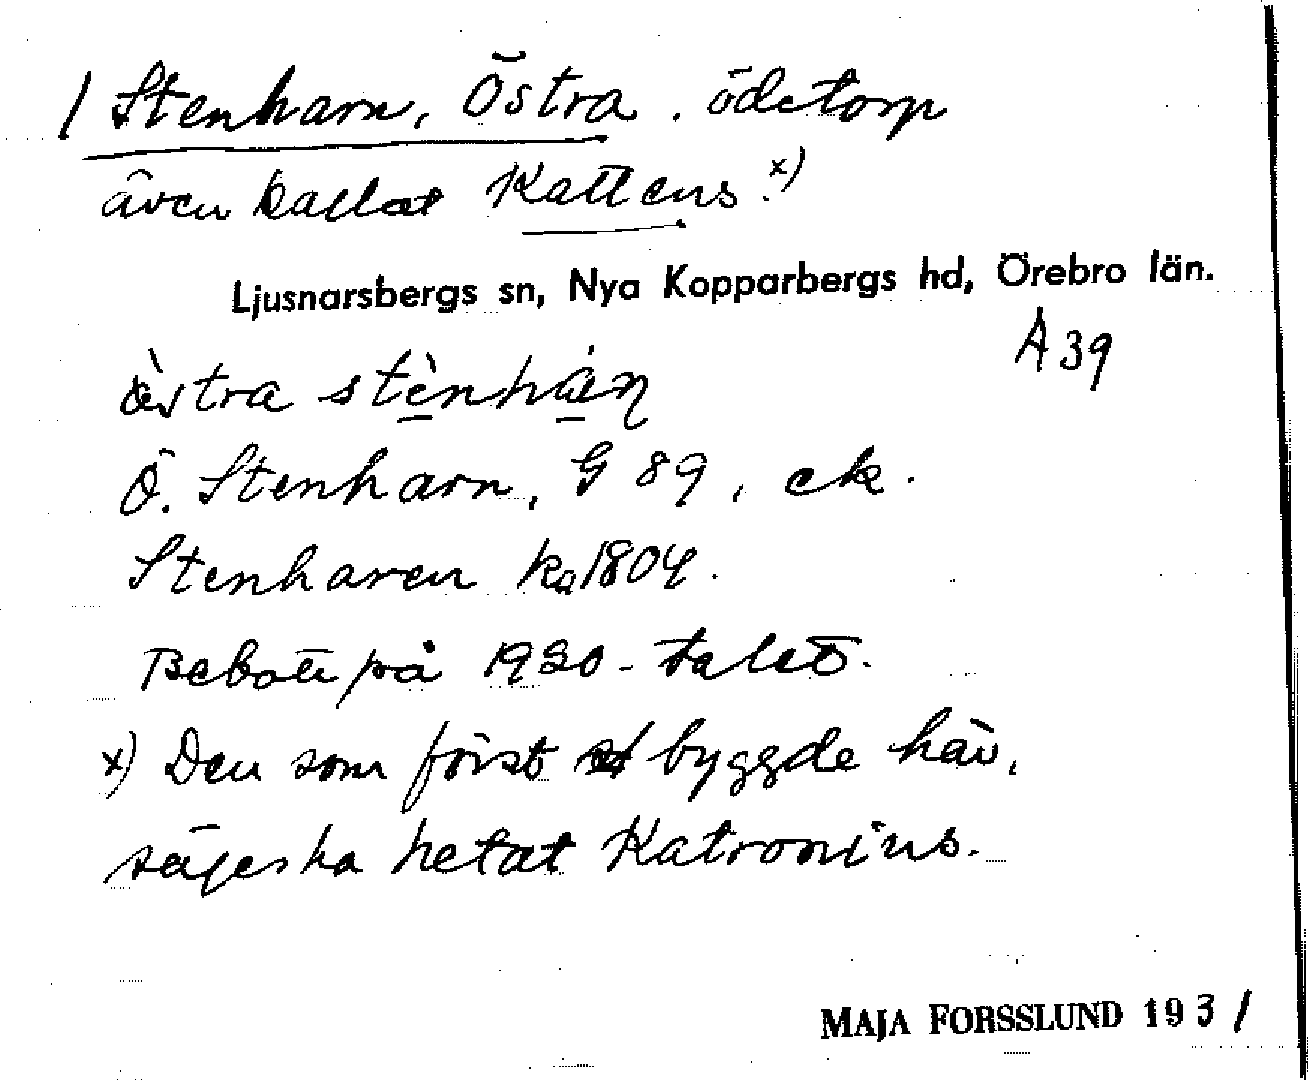 / Stenharn, Östra. ödetorp
även kallat Kattens.x)
Ljusnarsbergs sn, Nya Kopparbergs hd, Örebro län.
A 39
Ö. Stenharn, G 89, ek.
Stenharen ka 1804.
Bebott på 1930-talet.
x) Den som först byggde här,
säges ha hetat Katronius.
MAJA FORSSLUND 1931